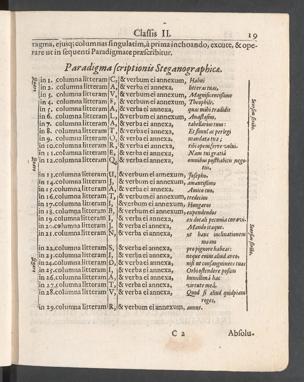 Classis II. 19
ragma, ejusq; columnas singulatim, à prima inchoando, excute, & ope-
rare ut in sequenti Paradigmate præscribitur.
Paradigma scriptionis Steganographicæ.
in 1. columna litteram C, & verbum ei annexum, Habui
in 2. columna litteram A, & verba ei annexa, litteras tuas,
in 3. columna litteram V, & verbum ei annexum, Magnificentissime
in 4. columna litteram E, & verbum ei annexum, Theophile,
in 5. columna litteram A, & verba ei annexa, quas mihi tradidit
in 6. columna litteram L, & verbum ei annexum, Anastasius,
in 7. columna litteram A, & verba ei annexa, tabellarius tuus:
in 8. columna litteram T, & verba ei annexa, Et simul ac perlegi
in 9. columna litteram O, & verba ei annexa, mandata tua;
in 10. columna litteram R, & verba ei annexa,
in 11. columna litteram E, & verba ei annexa, Nam tua gratia
in 12. columna litteram Q, & verba ei annexa, omnibus posthabitis nego-
tiis,
in 13. columna litteram U, & verbum ei annexum, Josepho,
in 14. columna litteram I, & verbum ei annexum, amantissimo
in 15. columna litteram A, & verba ei annexa, Amico tuo,
in 16. columna litteram T, & verbum ei annexum, tredecim
in 17. columna litteram I, & verbum ei annexum, Hungaros
in 18. columna litteram B, & verbum ei annexum, expendendos
in 19. columna litteram I, & verba ei annexa,
in 20. columna litteram L, & verba ei annexa, Mando itaque,
in 21. columna litteram N, & verba ei annexa, ut hanc inclinationem
meam
in 22. columna litteram S, & verba ei annexa, pro pignore habeas:
in 23. columna litteram I, & verba ei annexa, neque enim aliud
in 24. columna litteram D, & verba ei annexa, nisi ut consanguineos tuos
in 25. columna litteram I, & verba ei annexa, Orbi ostendere possim
in 26. columna litteram A, & verba ei annexa,
in 27. columna litteram T, & verba ei annexa,
in 28. columna litteram V, & verba ei annexa, Quod si aliud quidpiam
roges,
in 29. columna litteram R, & verbum ei annexum, annue.
C 2 Absolu-